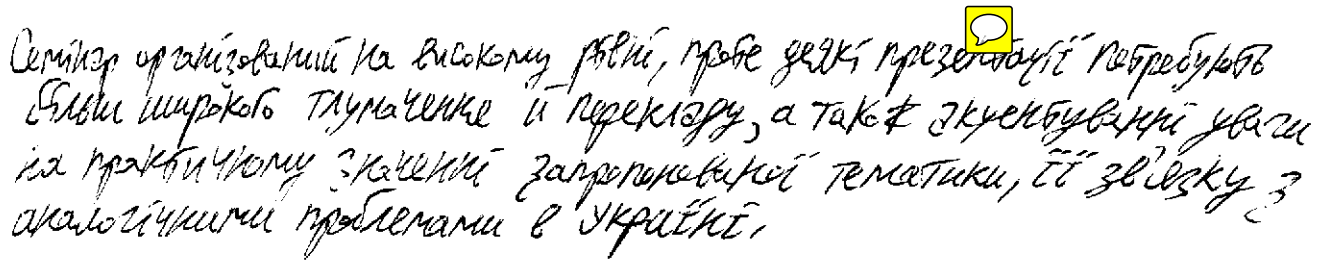 Семінар організований на високому рівні, проте деякі презентації потребують
більш широкого тлумачення й перекладу, а також акцентуванні уваги
на практичному значенні запропонованої тематики, її зв'язку з
аналогічними проблемами в Україні.